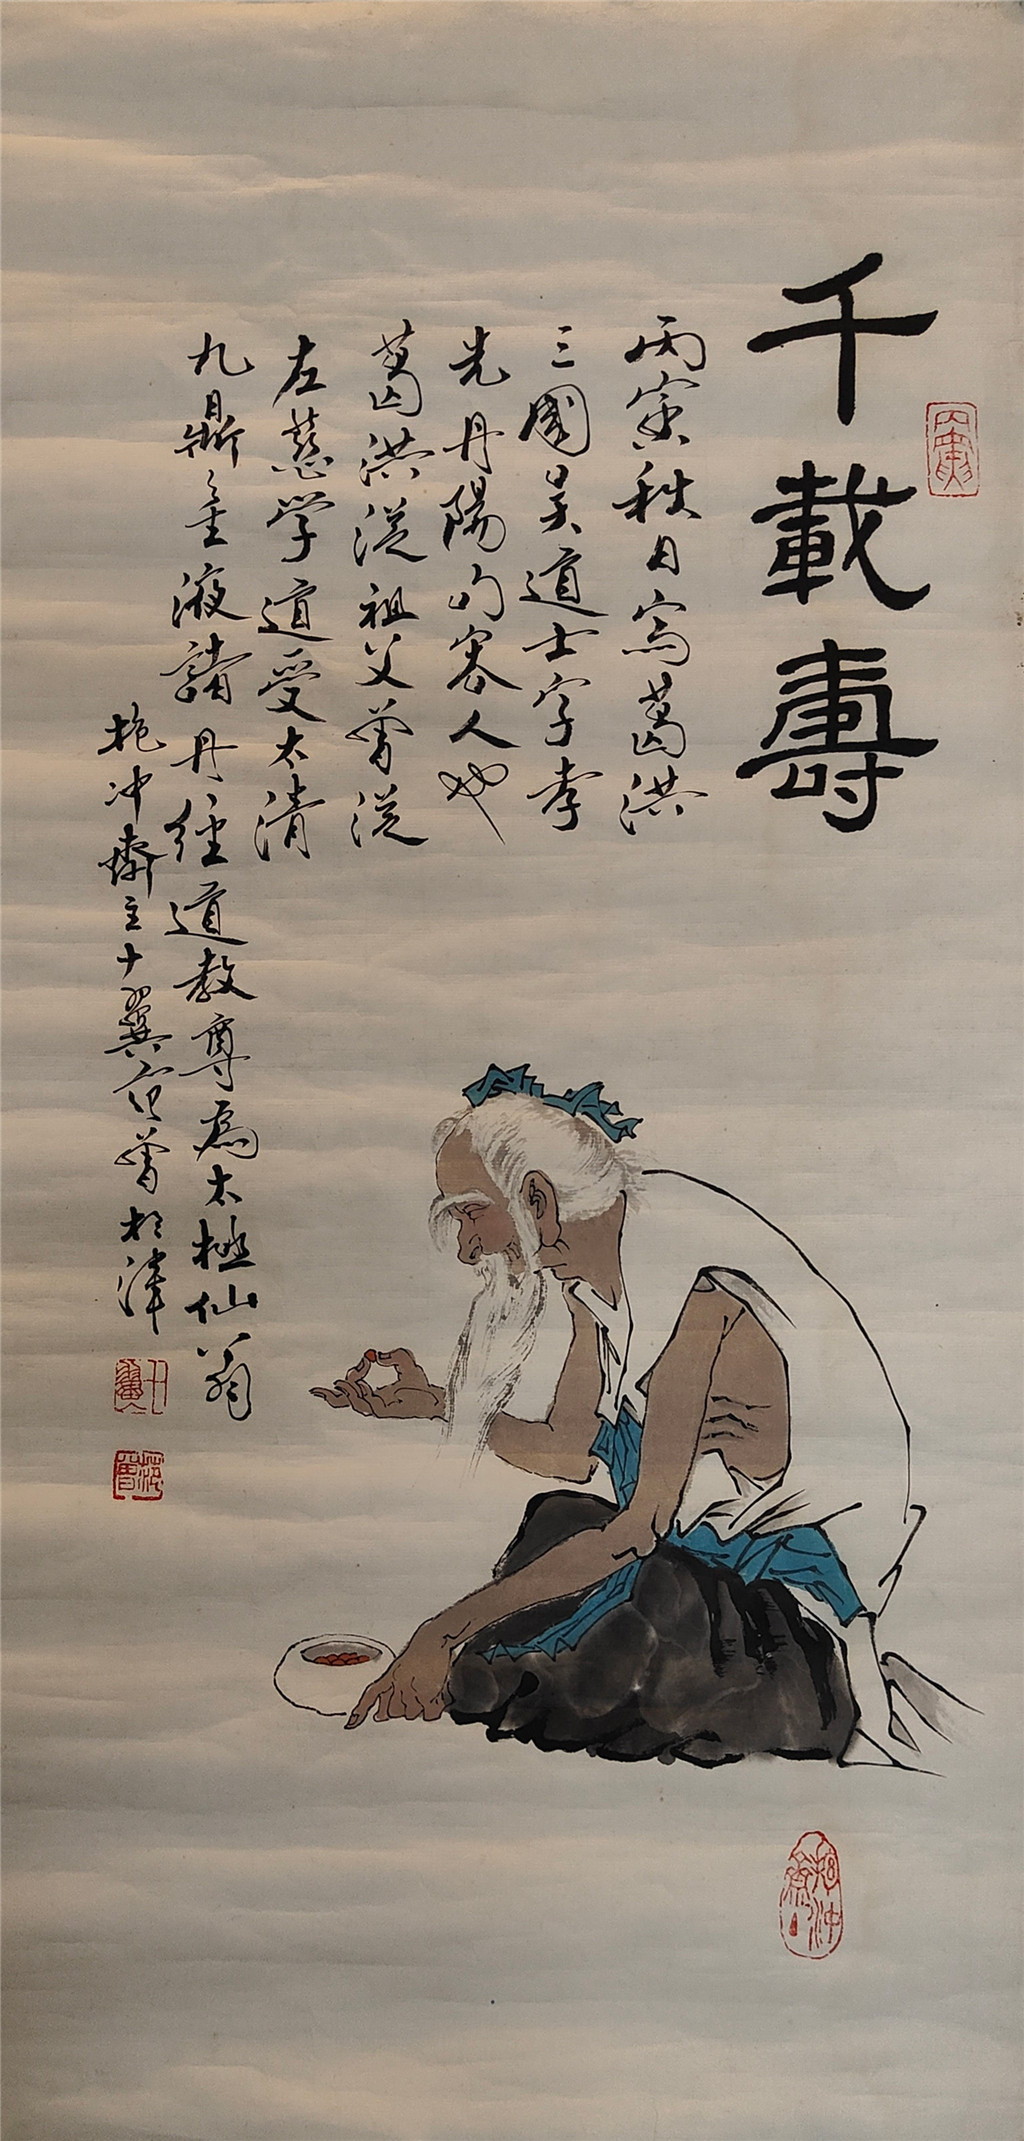 千載壽
丙寅秋日写葛洪
三國吴道士字孝
先丹陽句容人也
葛洪從祖父曾從
左慈学道受太清
九鼎金液諸丹经道教尊為太極仙翁
抱冲齋主十翼范曾於津
丙寅
范曾
抱冲齋